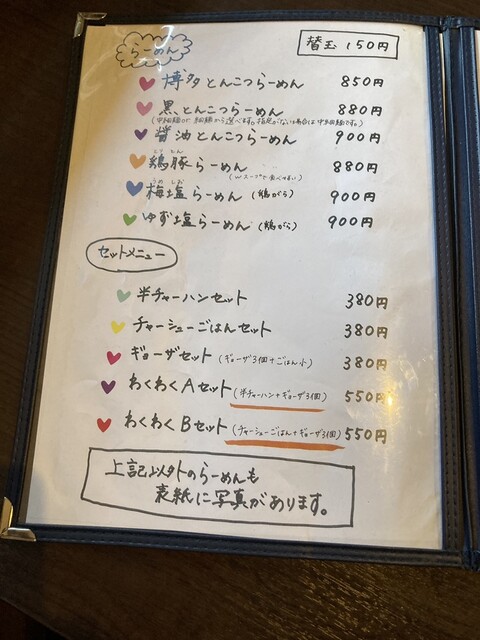 らーめん
替玉 150円
博多とんこつらーめん 850円
黒とんこつらーめん 880円
(中太麺or 細麺から選べます。指定がない場合は中太麺です。)
醤油とんこつらーめん 900円
鶏豚らーめん 880円
(Wスープで食べやすい)
うめ しお
梅塩らーめん (鶏がら) 900円
ゆず塩らーめん (鶏がら) 900円
セットメニュー
半チャーハンセット 380円
チャーシューごはんセット 380円
ギョーザセット (ギョーザ3個+ごはん小) 380円
わくわくAセット (半チャーハン+ギョーザ3個) 550円
わくわくBセット (チャーシューごはん+ギョーザ3個) 550円
上記以外のらーめんも
表紙に写真があります。